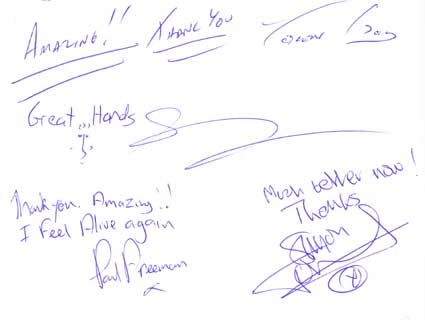 AMAZING!! THANK YOU
Great,,, Hands
Thank you. Amazing!!
I Feel Alive again
Paul Freeman
Much better now!
Thanks
Simon